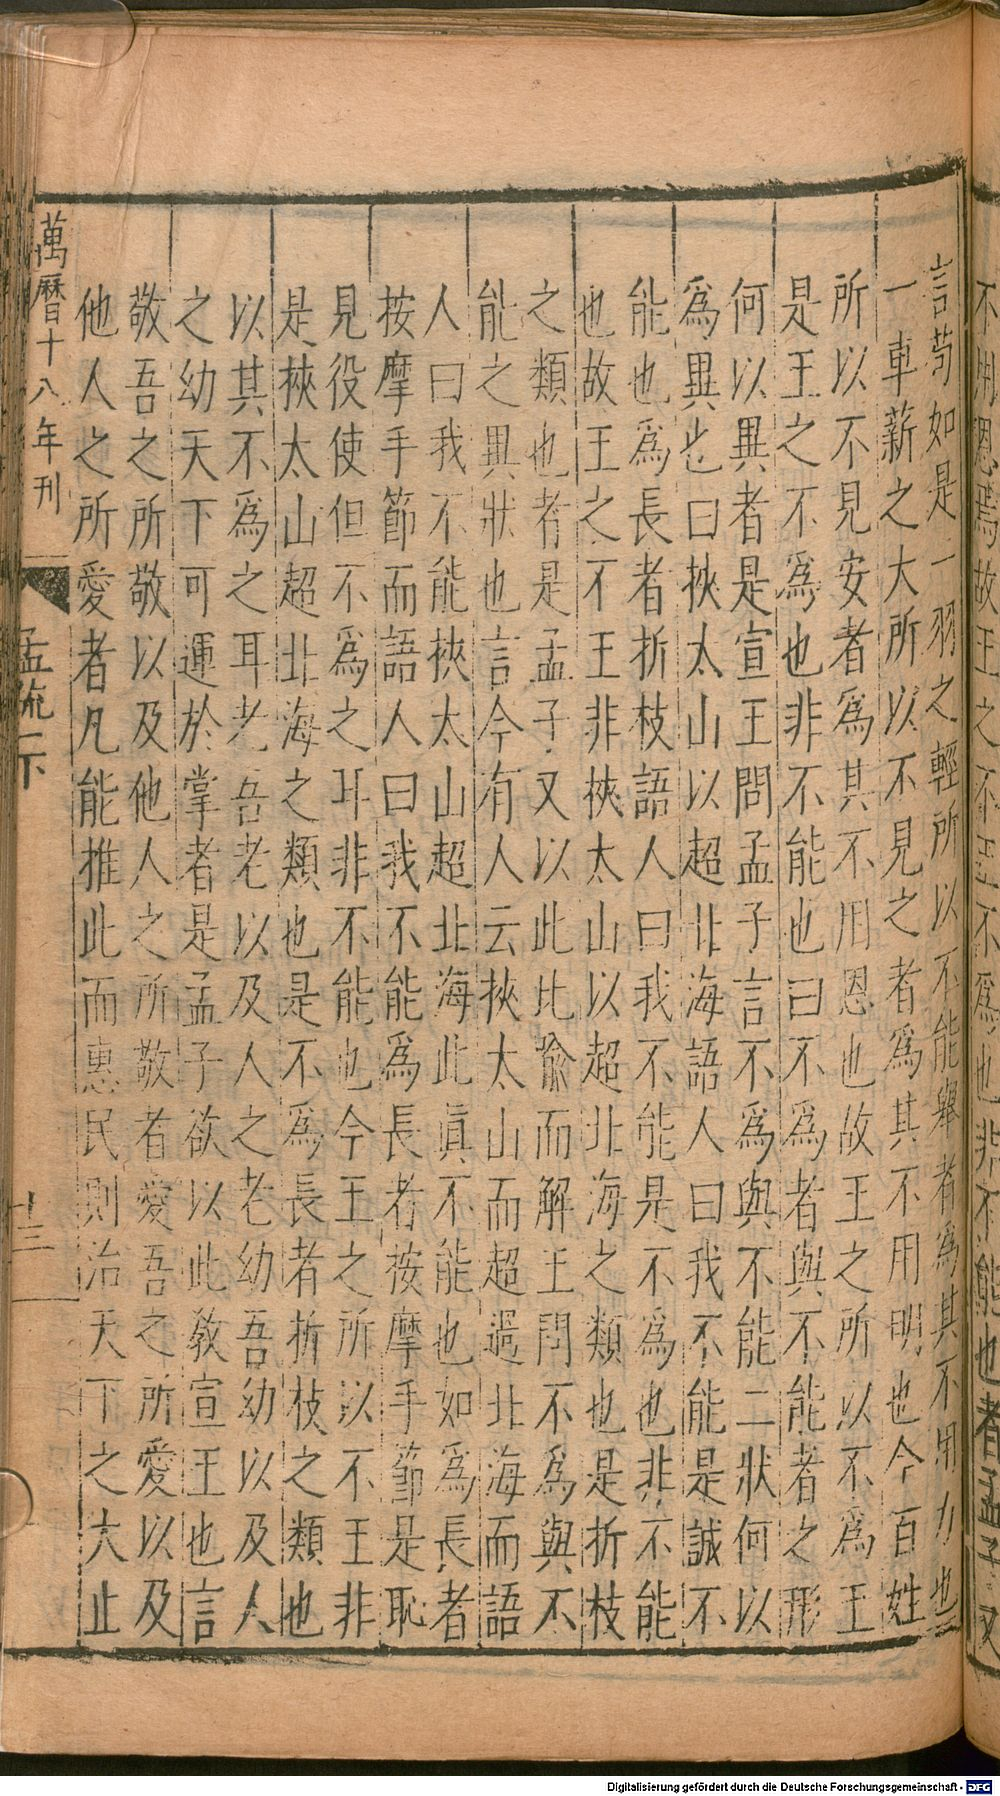 不用恩焉故王之不王不爲也非不能也者孟子又
言苟如是一羽之輕所以不能舉者爲其不用力也
一車薪之大所以不見之者爲其不用明也今百姓
所以不見安者爲其不用恩也故王之所以不爲王
是王之不爲也非不能也曰不爲者與不能者之形
何以異者是宣王問孟子言不爲與不能二狀何以
爲異也曰挾太山以超北海語人曰我不能是誠不
能也爲長者折枝語人曰我不能是不爲也非不能
也故王之不王非挾太山以超北海之類也是折枝
之類也者是孟子又以此比喻而解王問不爲與不
能之異狀也言今有人云挾太山而超過北海而語
人曰我不能挾太山超北海此真不能也如爲長者
按摩手節而語人曰我不能爲長者按摩手節是恥
見役使但不爲之耳非不能也今王之所以不王非
是挾太山超北海之類也是不爲長者折枝之類也
以其不爲之耳老吾老以及人之老幼吾幼以及人
之幼天下可運於掌者是孟子欲以此教宣王也言
敬吾之所敬以及他人之所敬者愛吾之所愛以及
他人之所愛者凡能推此而惠民則治天下之大止
萬曆十八年刊
孟疏一下
十三
Digitalisierung gefördert durch die Deutsche Forschungsgemeinschaft - DFG